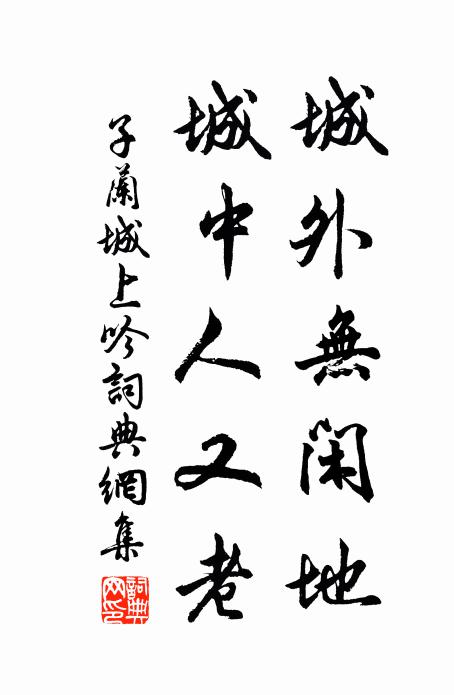 城外無閑地
城中人又老
子蘭城上吟詞典網集
詞典網印